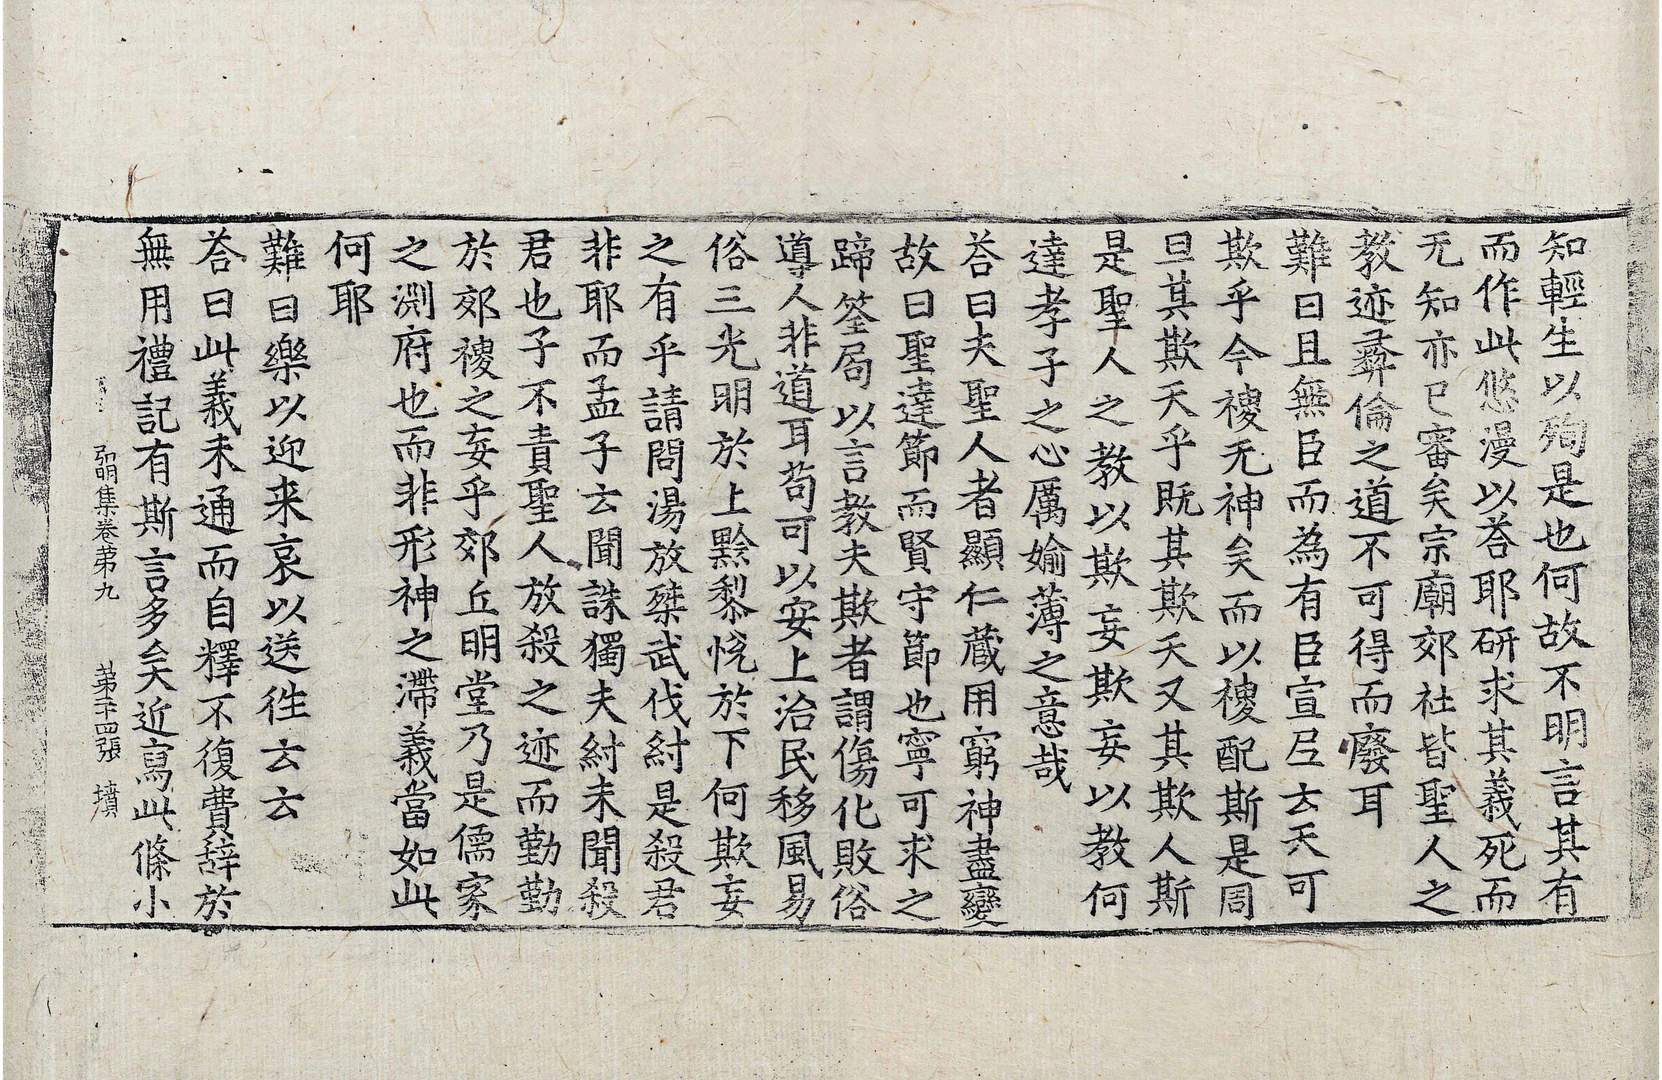 知輕生以殉是也何故不明言其有
而作此悠漫以荅耶研求其義死而
无知亦已審矣宗廟郊社皆聖人之
教迹彛倫之道不可得而廢耳
難曰且無臣而為有臣宣尼云天可
欺乎今稷无神矣而以稷配斯是周
旦其欺天乎既其欺天又其欺人斯
是聖人之教以欺妄欺妄以教何
達孝子之心厲媮薄之意哉
荅曰夫聖人者顯仁藏用窮神盡變
故曰聖達節而賢守節也寧可求之
蹄筌局以言教夫欺者謂傷化敗俗
導人非道耳苟可以安上治民移風易
俗三光明於上黔黎恱於下何欺妄
之有乎請問湯放桀武伐紂是殺君
非耶而孟子云聞誅獨夫紂未聞殺
君也子不責聖人放殺之迹而勤勤
於郊稷之妄乎郊丘明堂乃是儒家
之渕府也而非形神之滯義當如此
何耶
難曰樂以迎来哀以送徃云云
荅曰此義未通而自釋不復費辞於
無用禮記有斯言多矣近寫此條小
弘明集卷苐九 苐二十四張 墳